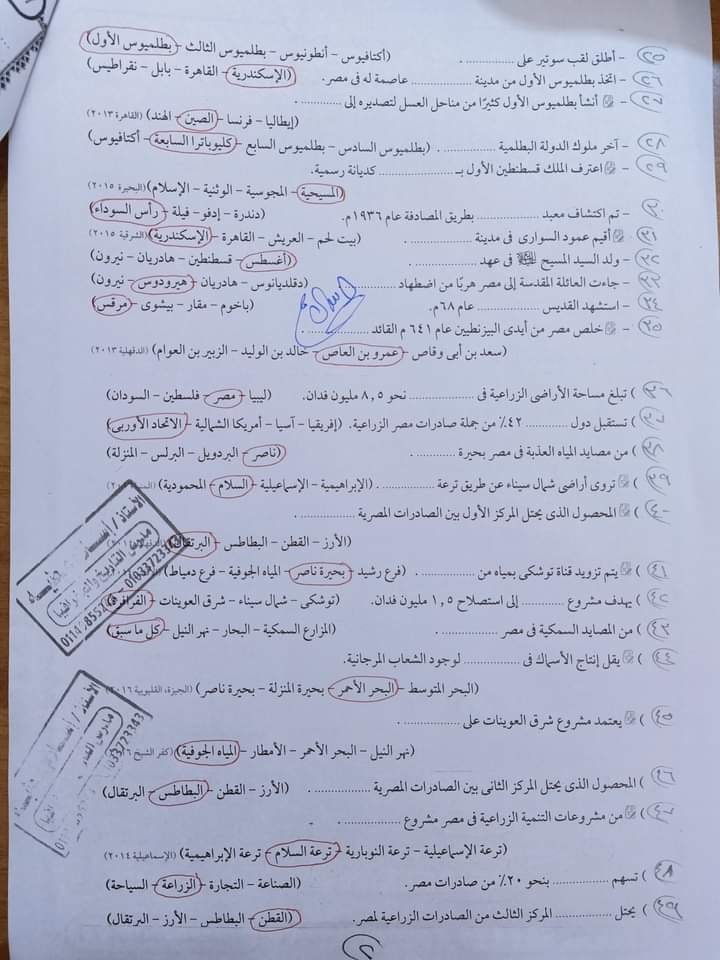 ٢٥ - أطلق لقب سوتير على .............. . (أكتافيوس - أنطونيوس - بطلميوس الثالث - بطلميوس الأول)
٢٦ - اتخذ بطلميوس الأول من مدينة .............. عاصمة له فى مصر. (الإسكندرية - القاهرة - بابل - نقراطيس)
٢٧ - أنشأ بطلميوس الأول كثيرًا من مناحل العسل لتصديره إلى .............. .
(إيطاليا - فرنسا - الصين - الهند) (القاهرة ٢٠١٣)
٢٨ - آخر ملوك الدولة البطلمية .............. . (بطلميوس السادس - بطلميوس السابع - كليوباترا السابعة - أكتافيوس)
٢٩ - اعترف الملك قسطنطين الأول بـ .............. كديانة رسمية.
(المسيحية - المجوسية - الوثنية - الإسلام) (البحيرة ٢٠١٥)
٣٠ - تم اكتشاف معبد .............. بطريق المصادفة عام ١٩٣٦م. (دندرة - إدفو - فيلة - رأس السوداء)
٣١ - أقيم عمود السوارى فى مدينة .............. . (بيت لحم - العريش - القاهرة - الإسكندرية) (الشرقية ٢٠١٥)
٣٢ - ولد السيد المسيح فى عهد .............. . (أغسطس - قسطنطين - هادريان - نيرون)
٣٣ - جاءت العائلة المقدسة إلى مصر هربًا من اضطهاد .............. (دقلديانوس - هادريان - هيرودوس - نيرون)
٣٤ - استشهد القديس .............. عام ٦٨م. (باخوم - مقار - بيشوى - مرقس)
٣٥ - خلص مصر من أيدى البيزنطيين عام ٦٤١ م القائد .............. .
(سعد بن أبى وقاص - عمرو بن العاص - خالد بن الوليد - الزبير بن العوام) (الدقهلية ٢٠١٣)
) تبلغ مساحة الأراضى الزراعية فى .............. نحو ٨,٥ مليون فدان. (ليبيا - مصر - فلسطين - السودان)
) تستقبل دول .............. ٤٢٪ من جملة صادرات مصر الزراعية. (إفريقيا - آسيا - أمريكا الشمالية - الاتحاد الأوربى)
) من مصايد المياه العذبة فى مصر بحيرة .............. . (ناصر - البردويل - البرلس - المنزلة)
٣٩ ) تروى أراضى شمال سيناء عن طريق ترعة .............. . (الإبراهيمية - الإسماعيلية - السلام - المحمودية)
٤٠ ) المحصول الذى يحتل المركز الأول بين الصادرات المصرية .............. .
(الأرز - القطن - البطاطس - البرتقال)
٤١ ) يتم تزويد قناة توشكى بمياه من .............. . (فرع رشيد - بحيرة ناصر - المياه الجوفية - فرع دمياط)
٤٢ ) يهدف مشروع .............. إلى استصلاح ١,٥ مليون فدان. (توشكى - شمال سيناء - شرق العوينات - الفرافرة)
٤٣ ) من المصايد السمكية فى مصر .............. . (المزارع السمكية - البحار - نهر النيل - كل ما سبق)
٤٤ ) يقل إنتاج الأسماك فى .............. لوجود الشعاب المرجانية.
(البحر المتوسط - البحر الأحمر - بحيرة المنزلة - بحيرة ناصر) (الجيزة، القليوبية ٢٠١٦)
٤٥ ) يعتمد مشروع شرق العوينات على .............. .
(نهر النيل - البحر الأحمر - الأمطار - المياه الجوفية) (كفر الشيخ
٤٦ ) المحصول الذى يحتل المركز الثانى بين الصادرات المصرية .............. . (الأرز - القطن - البطاطس - البرتقال)
٤٧ ) من مشروعات التنمية الزراعية فى مصر مشروع .............. .
(ترعة الإسماعيلية - ترعة النوبارية - ترعة السلام - ترعة الإبراهيمية) (الإسماعيلية ٢٠١٤)
٤٨ ) تسهم .............. بنحو ٢٠٪ من صادرات مصر. (الصناعة - التجارة - الزراعة - السياحة)
٤٩ ) يحتل .............. المركز الثالث من الصادرات الزراعية لمصر. (القطن - البطاطس - الأرز - البرتقال)
٧